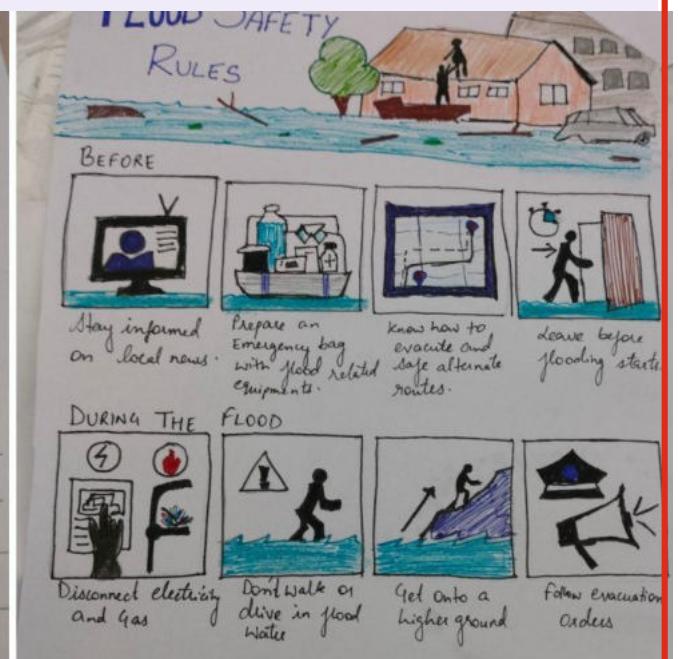 FLOOD SAFETY
RULES
BEFORE
Stay informed
on local news.
Prepare an
Emergency bag
with flood related
equipments.
Know how to
evacuate and
safe alternate
routes.
Leave before
flooding starts
DURING THE FLOOD
Disconnect electricity
and Gas
Don't walk or
drive in flood
water
Get onto a
higher ground
Follow evacuation
Orders